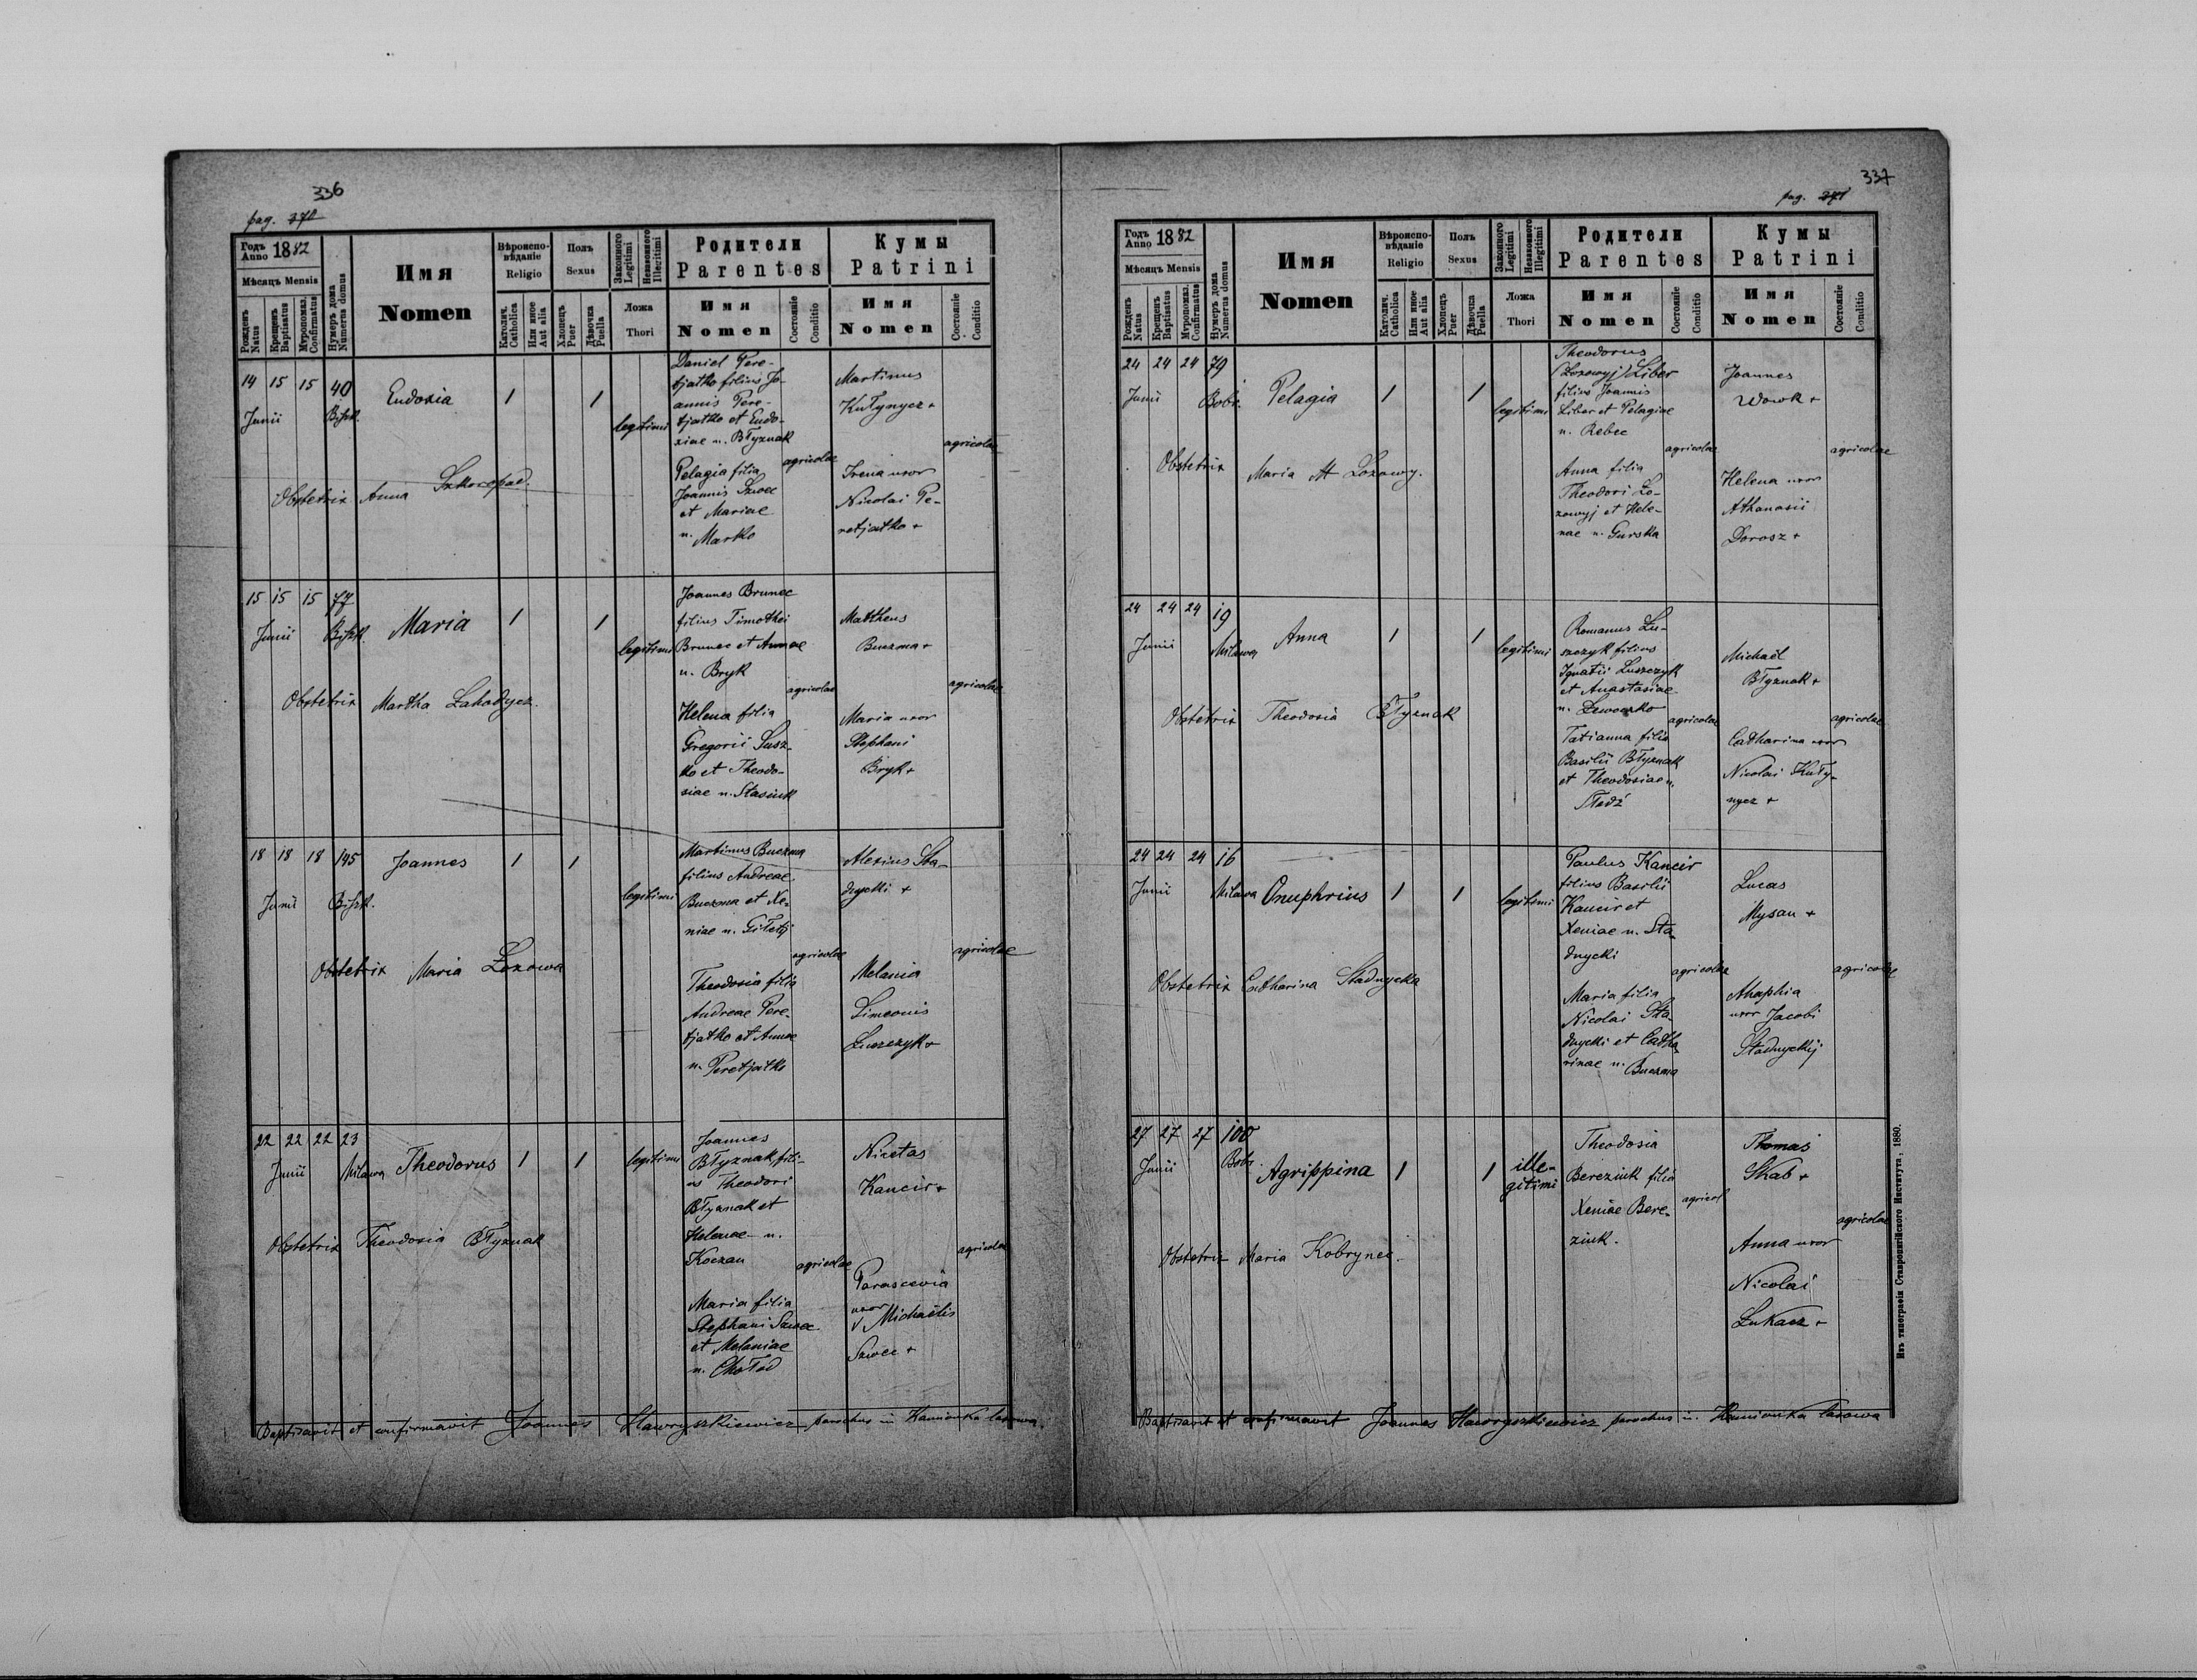 336
pag. 370
Годъ Anno 1882
Мѣсяцъ Mensis
Рожденъ Natus
Крещенъ Baptisatus
Мѵропомаз. Confirmatus
Нумеръ дома Numerus domus
Имя
Nomen
Вѣроиспо-
вѣданіе
Religio
Католич. Catholica
Или иное Aut alia
Полъ
Sexus
Хлопецъ Puer
Дѣвочка Puella
Законного Legitimi
Незаконного Illegitimi
Ложа
Thori
Родители
Parentes
Имя
Nomen
Состояніе Conditio
Кумы
Patrini
Имя
Nomen
Состояніе Conditio
14 15 15 40
Junii
Eudoxia
1
1
legitimi
Daniel Pere-
tjatko filius Jo-
annis Pere-
tjatko et Eudo-
xiae n. Błyznak
Pelagia filia
Joannis Szwec
et Mariae
n. Marko
agricolae
Martinus
Kułynycz +
Irena uxor
Nicolai Pe-
retjatko +
agricolae
Obstetrix Anna Szkoropad.
15 15 15 77
Junii
Maria
1
1
legitimi
Joannes Brunec
filius Timothei
Brunec et Annae
n. Bryk
Helena filia
Gregorii Susz-
ko et Theodo-
siae n. Stasiuk
agricolae
Mattheus
Buczma +
Maria uxor
Stephani
Bryk +
agricolae
Obstetrix Martha Lahodycz.
18 18 18 145
Junii
Joannes
1
1
legitimi
Martinus Buczma
filius Andreae
Buczma et Xe-
niae n. Giłetij
Theodosia filia
Andreae Pere-
tjatko et Annae
n. Peretjatko
agricolae
Alexius Sta-
dnycki +
Melania
Simeonis
Łuszczyk +
agricolae
Obstetrix Maria Łozowa
22 22 22 23
Junii Milawa
Theodorus
1
1
legitimi
Joannes
Błyznak, fili-
us Theodori
Błyznak et
Helenae n.
Koczan
Maria filia
Stephani Szwec
et Melaniae
n. Chołod
agricolae
Nicetas
Kancir +
Parascevia
uxor
v Michaëlis
Szwec +
agricolae
Obstetrix Theodosia Błyznak
Baptisavit et confirmavit Joannes Hawryszkiewicz parochus in Kamionka lasowa.
337
pag. 371
Годъ Anno 1882
Мѣсяцъ Mensis
Рожденъ Natus
Крещенъ Baptisatus
Мѵропомаз. Confirmatus
Нумеръ дома Numerus domus
Имя
Nomen
Вѣроиспо-
вѣданіе
Religio
Католич. Catholica
Или иное Aut alia
Полъ
Sexus
Хлопецъ Puer
Дѣвочка Puella
Законного Legitimi
Незаконного Illegitimi
Ложа
Thori
Родители
Parentes
Имя
Nomen
Состояніе Conditio
Кумы
Patrini
Имя
Nomen
Состояніе Conditio
24 24 24 79
Junii Bobr.
Pelagia
1
1
legitimi
Theodorus
(Łozowyj) Liber
filius Joannis
Liber et Pelagiae
n. Rebec
Anna filia
Theodori Ło-
zowyj et Hele-
nae n. Gurska
agricolae
Joannes
Wowk +
Helena uxor
Athanasii
Dorosz +
agricolae
Obstetrix Maria Łozowy.
24 24 24 19
Junii Milawa
Anna
1
1
legitimi
Romanus Łu-
szczyk filius
Ignatii Łuszczyk
et Anastasiae
n. Lewoczko
Tatianna filia
Basilii Błyznak
et Theodosiae n.
agricolae
Michaël
Błyznak +
Catharina uxor
Nicolai Kuły-
nycz +
agricolae
Obstetrix Theodosia Błyznak
24 24 24 16
Junii Milawa
Onuphrius
1
1
legitimi
Paulus Kancir
filius Basilii
Kancir et
Xeniae n. Sta-
dnycki
Maria filia
Nicolai Sta-
dnycki et Catha-
rinae n. Buczma
agricolae
Lucas
Mysan +
Ahaphia
uxor Jacobi
Stadnyckij
agricolae
Obstetrix Catharina Stadnycka
27 27 27 100
Junii Bobr.
Agrippina
1
1
ille-
gitimi
Theodosia
Bereziuk filia
Xeniae Bere-
ziuk.
agricol
Thomas
Skab +
Anna uxor
Nicolai
Łukacz +
agricolae
Obstetrix Maria Kobrynec.
Baptisavit et confirmavit Joannes Hawryszkiewicz parochus in Kamionka lasowa
Изъ типографіи Ставропигійского Института, 1880.